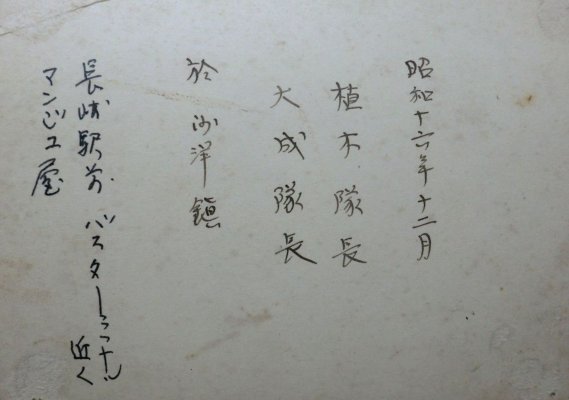 昭和十六年十二月
植木隊長
大成隊長
於 沙洋鎭
長崎駅前 バスターミナル
近く
マンジュ屋